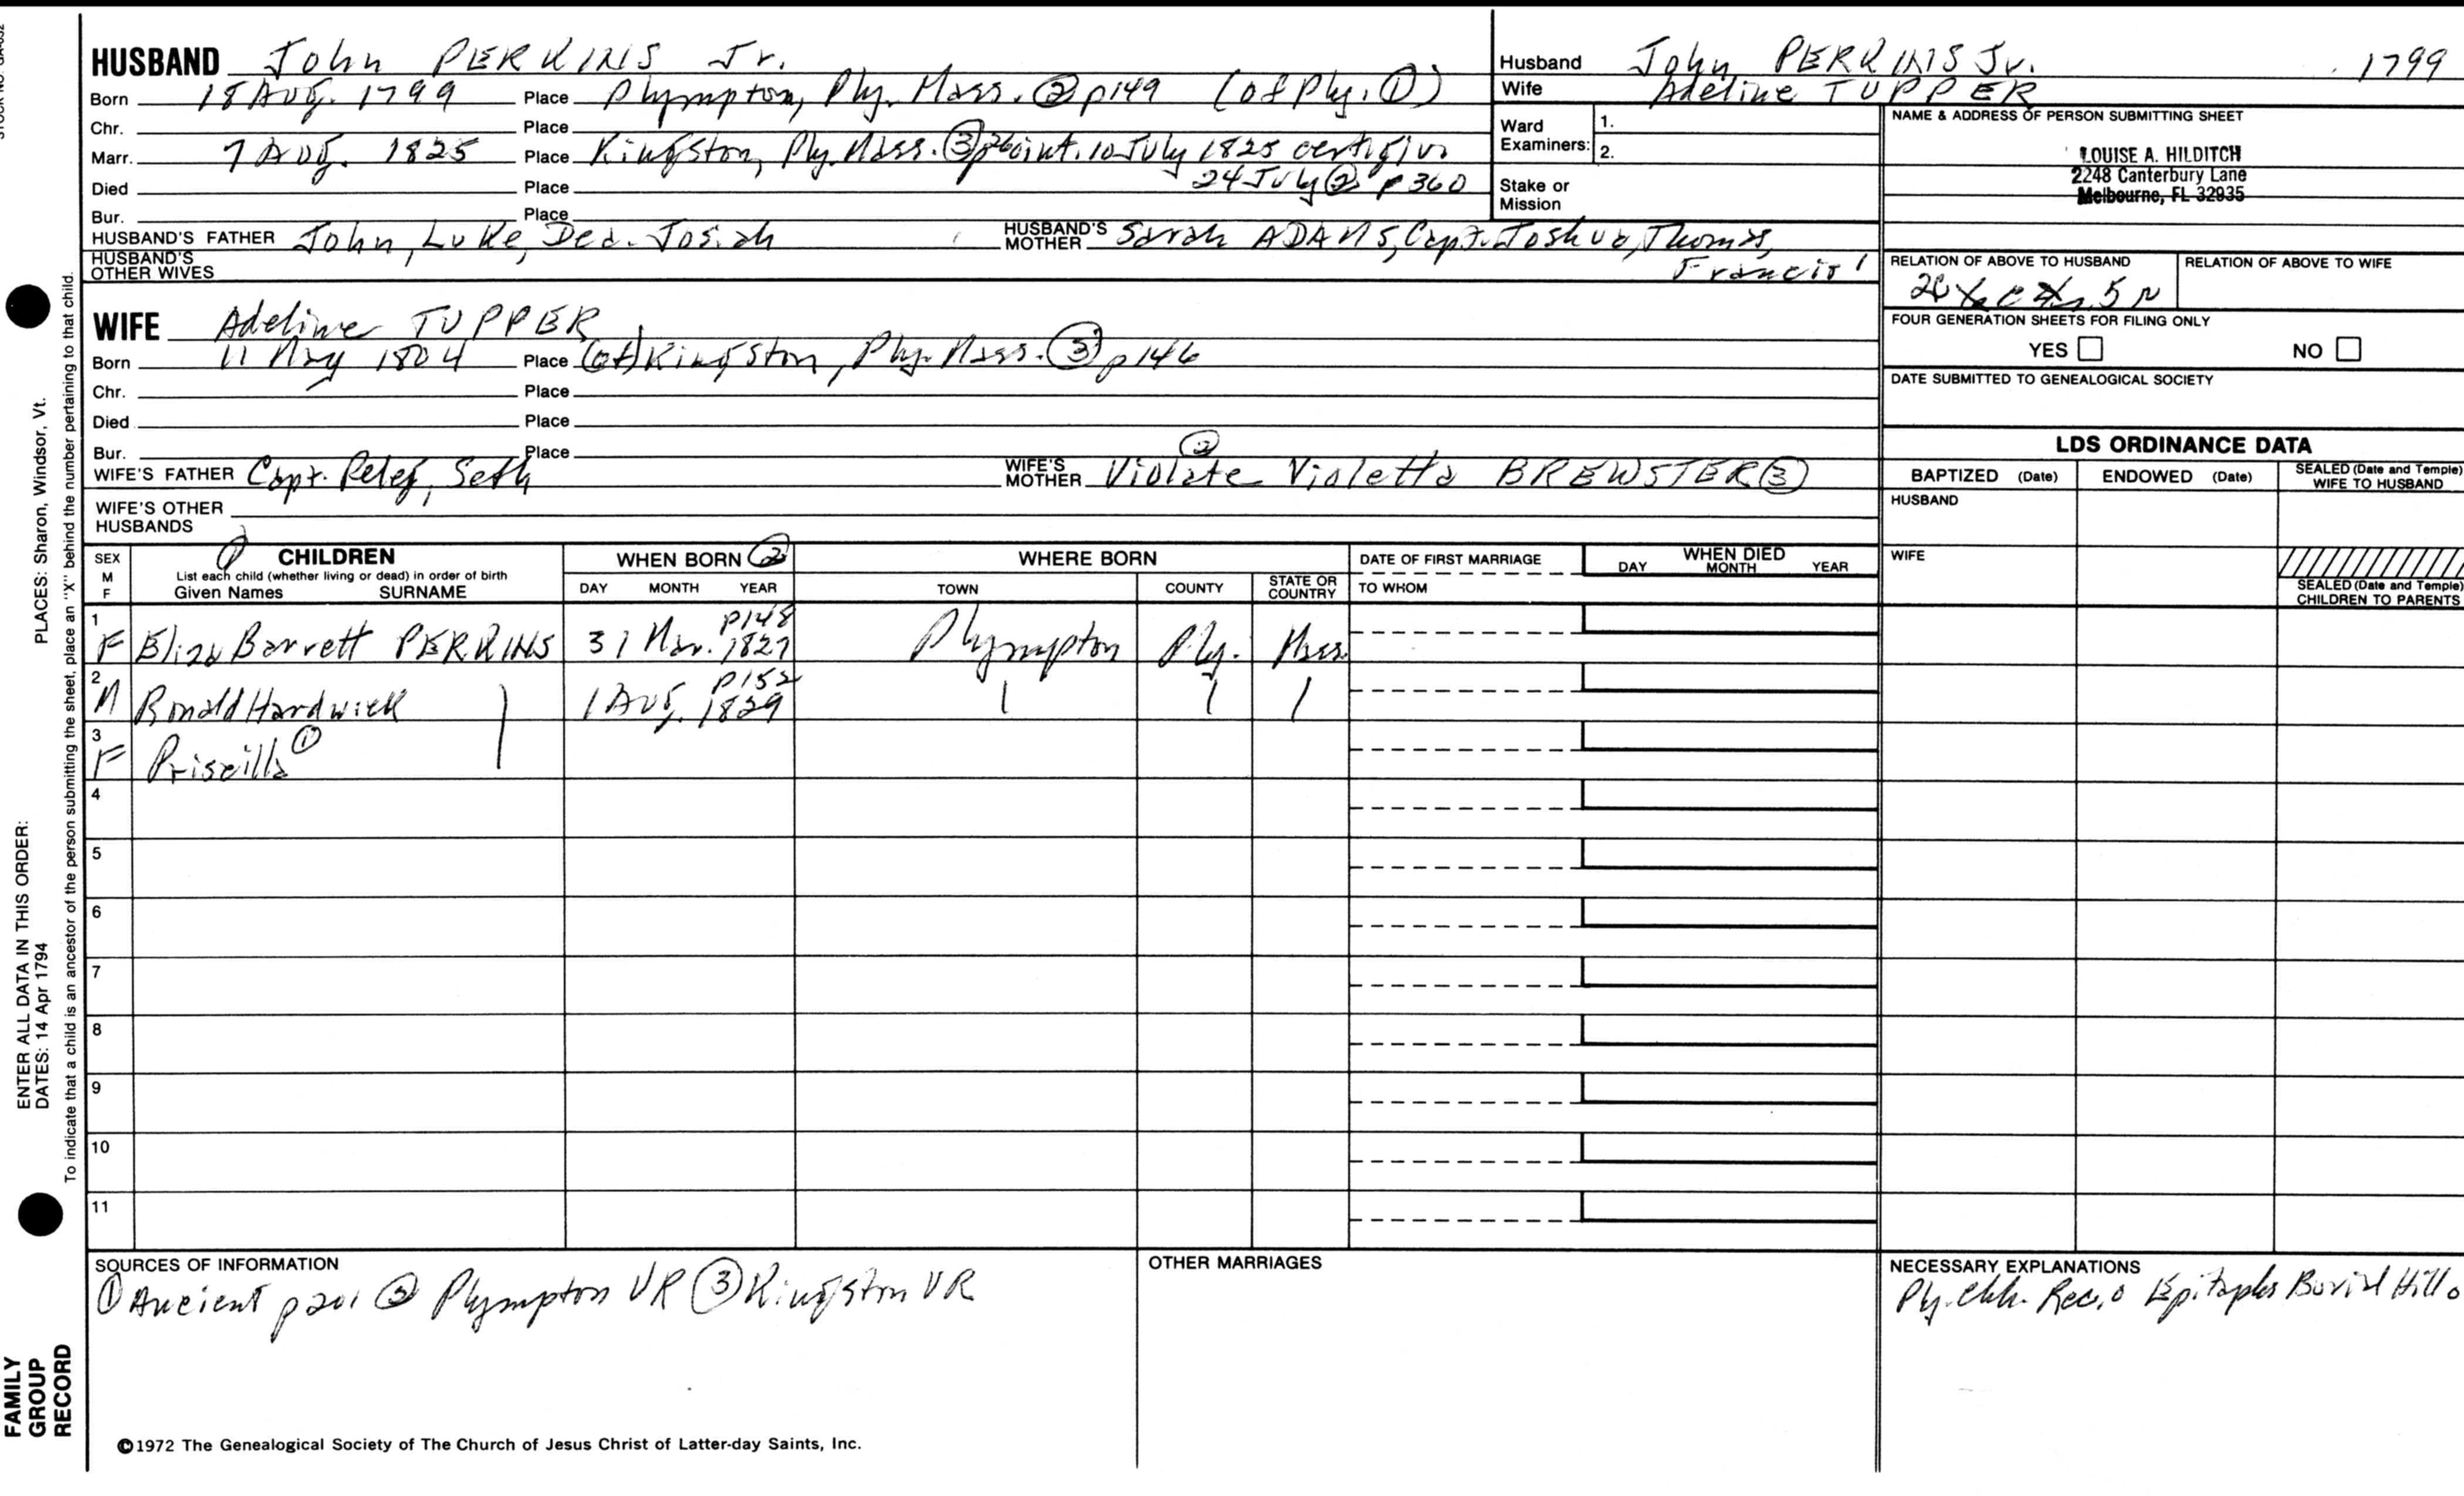 HUSBAND John PERKINS Jr.
Born 18 Aug. 1799 Place Plympton, Ply. Mass. ② p149 (of Ply. ①)
Chr. Place
Marr. 7 Aug. 1825 Place Kingston, Ply. Mass. ③ int. 10 July 1825 certif
24 July ② p360
Died Place
Bur. Place
HUSBAND'S FATHER John, Luke, Dea. Josiah HUSBAND'S MOTHER Sarah ADAMS, Capt. Joshua, Thomas,
Francis
HUSBAND'S OTHER WIVES
WIFE Adeline TUPPER
Born 11 May 1804 Place (of) Kingston, Ply. Mass. ③ p146
Chr. Place
Died Place
Bur. Place
WIFE'S FATHER Capt. Peleg, Seth WIFE'S MOTHER Violate ② Violetta BREWSTER ③
WIFE'S OTHER HUSBANDS
Husband John PERKINS Jr. 1799
Wife Adeline TUPPER
Ward Examiners: 1.
2.
Stake or Mission
NAME & ADDRESS OF PERSON SUBMITTING SHEET
LOUISE A. HILDITCH
2248 Canterbury Lane
Melbourne, FL 32935
RELATION OF ABOVE TO HUSBAND RELATION OF ABOVE TO WIFE
5 N
FOUR GENERATION SHEETS FOR FILING ONLY
YES NO
DATE SUBMITTED TO GENEALOGICAL SOCIETY
LDS ORDINANCE DATA
BAPTIZED (Date) ENDOWED (Date) SEALED (Date and Temple) WIFE TO HUSBAND
HUSBAND
WIFE
SEALED (Date and Temple) CHILDREN TO PARENTS
SEX M F CHILDREN WHEN BORN ② WHERE BORN DATE OF FIRST MARRIAGE WHEN DIED
List each child (whether living or dead) in order of birth
Given Names SURNAME DAY MONTH YEAR TOWN COUNTY STATE OR COUNTRY TO WHOM DAY MONTH YEAR
p148
1 F Eliza Barrett PERKINS 31 Mar. 1827 Plympton Ply. Mass.
p152
2 M Ronald Hardwick 1 Aug. 1829
3 F Priscilla ①
4
5
6
7
8
9
10
11
SOURCES OF INFORMATION
① Ancient p201 ② Plympton VR ③ Kingston VR
OTHER MARRIAGES
NECESSARY EXPLANATIONS
Ply. Chh. Rec. o Epitaphs Burial Hill o
©1972 The Genealogical Society of The Church of Jesus Christ of Latter-day Saints, Inc.
FAMILY GROUP RECORD
ENTER ALL DATA IN THIS ORDER:
DATES: 14 Apr 1794
PLACES: Sharon, Windsor, Vt.
To indicate that a child is an ancestor of the person submitting the sheet, place an "X" behind the number pertaining to that child.